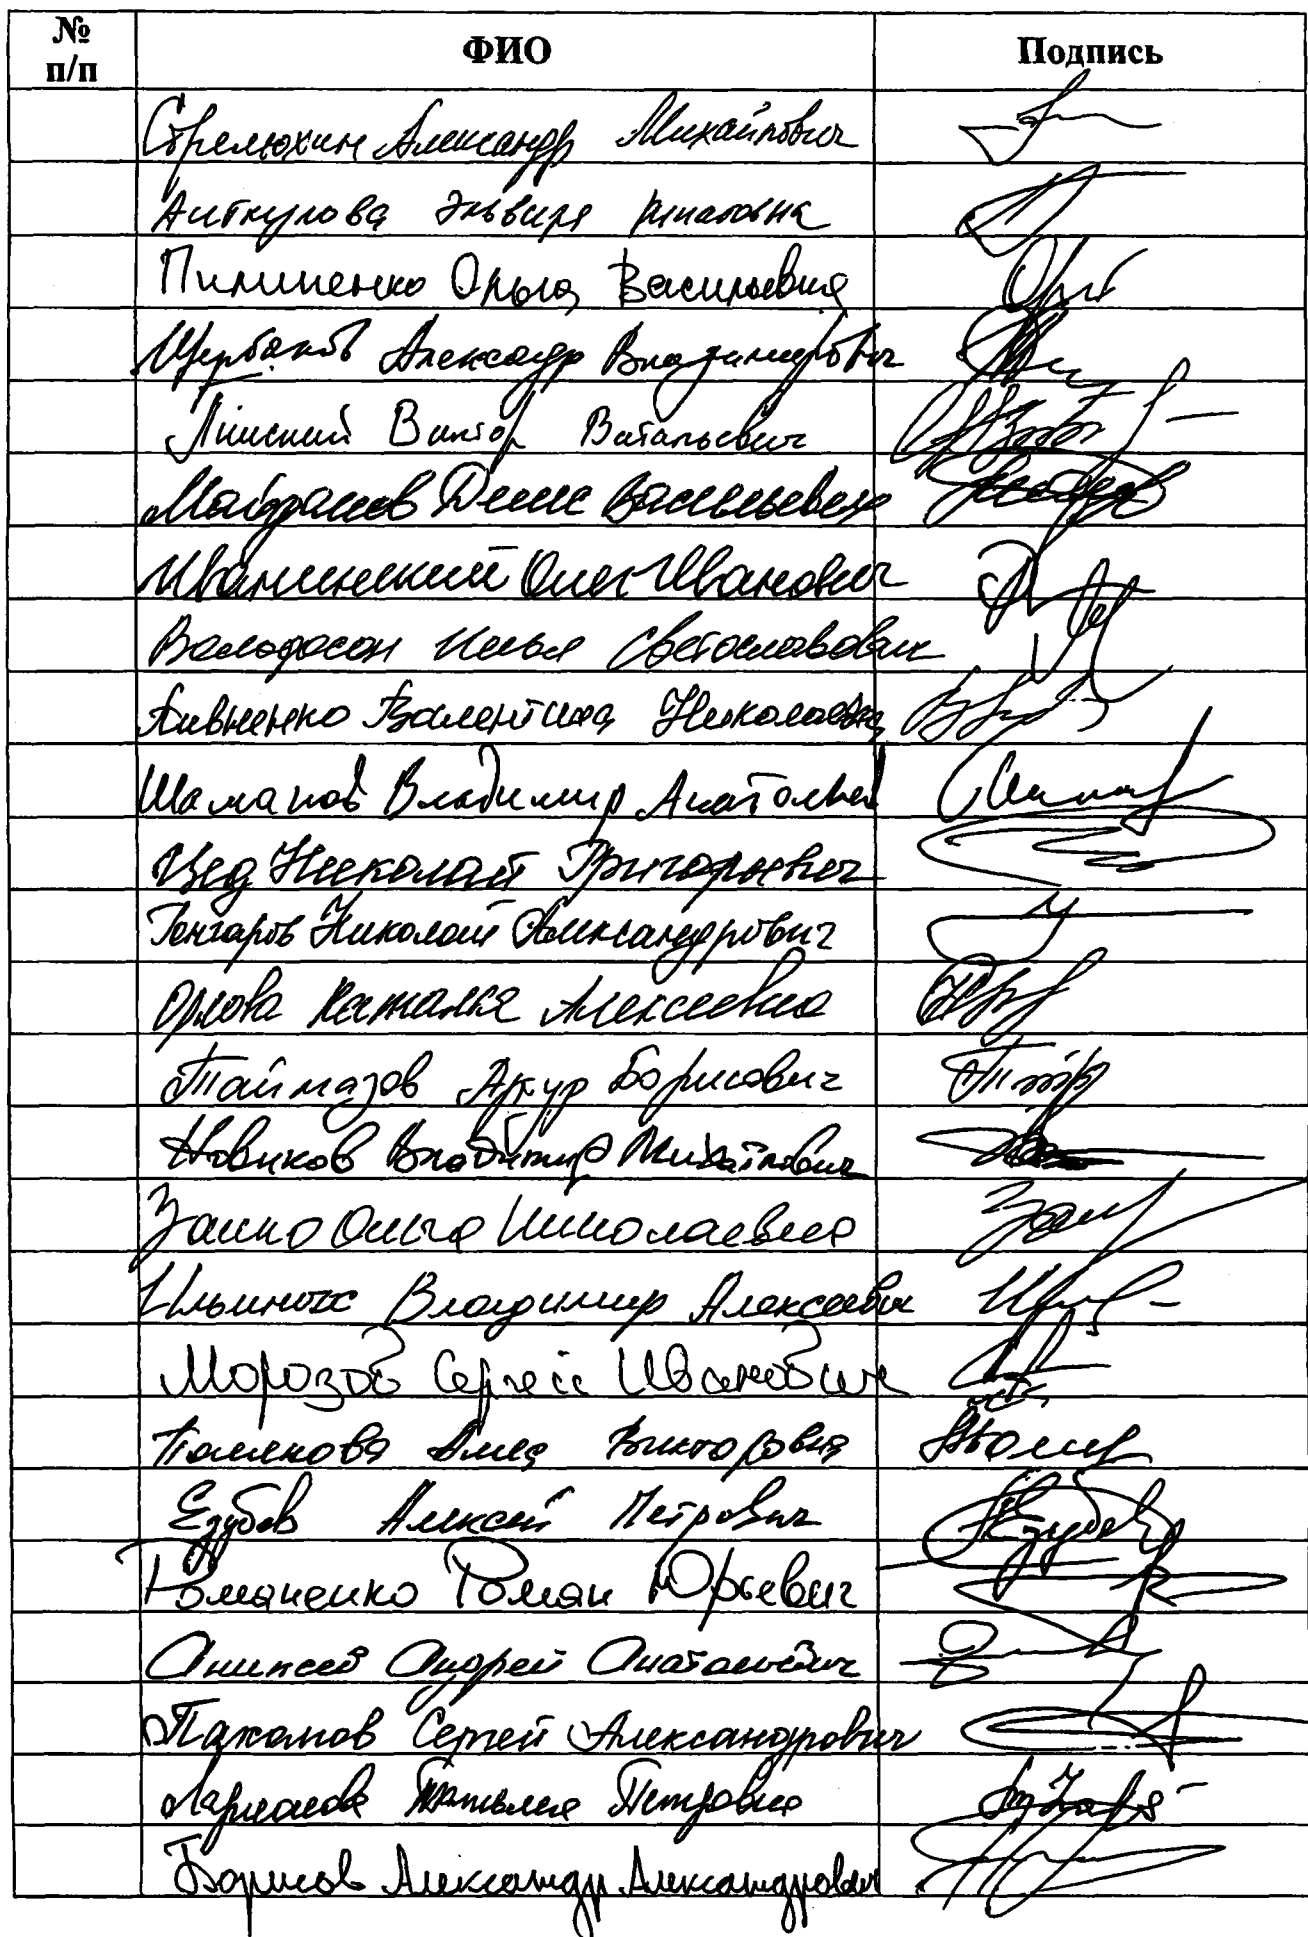 № п/п ФИО Подпись
Стрелюхин Александр Михайлович
Аиткулова Эльвира Ринатовна
Пилипенко Ольга Васильевна
Щербаков Александр Владимирович
Пинский Виктор Витальевич
Майданов Денис Васильевич
Иванинский Олег Иванович
Вольфсон Илья Светославович
Пивненко Валентина Николаевна
Шаманов Владимир Анатольев
Цед Николай Григорьевич
Гончаров Николай Александрович
Орлова Наталия Алексеевна
Таймазов Артур Борисович
Новиков Владимир Михайлович
Занко Ольга Николаевна
Ильиных Владимир Алексеевич
Морозов Сергей Иванович
Полякова Алла Викторовна
Езубов Алексей Петрович
Романенко Роман Юрьевич
Андрей Анатольевич
Пахомов Сергей Александрович
Ларионова Татьяна Петровна
Борисов Александр Александрович